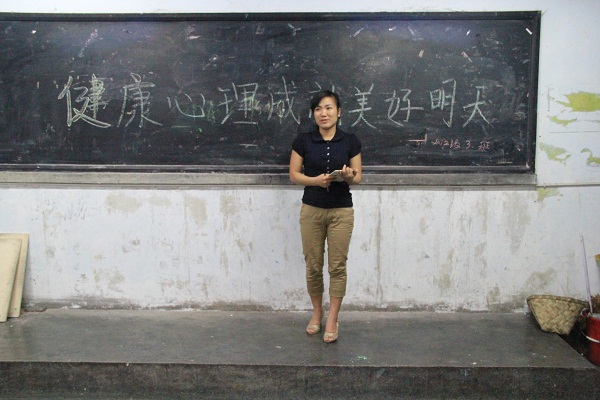 健康心理成 美好明天